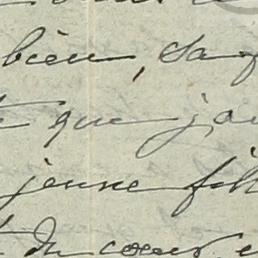 bien, sa
que j'ai
jeune fill
du coeur, e